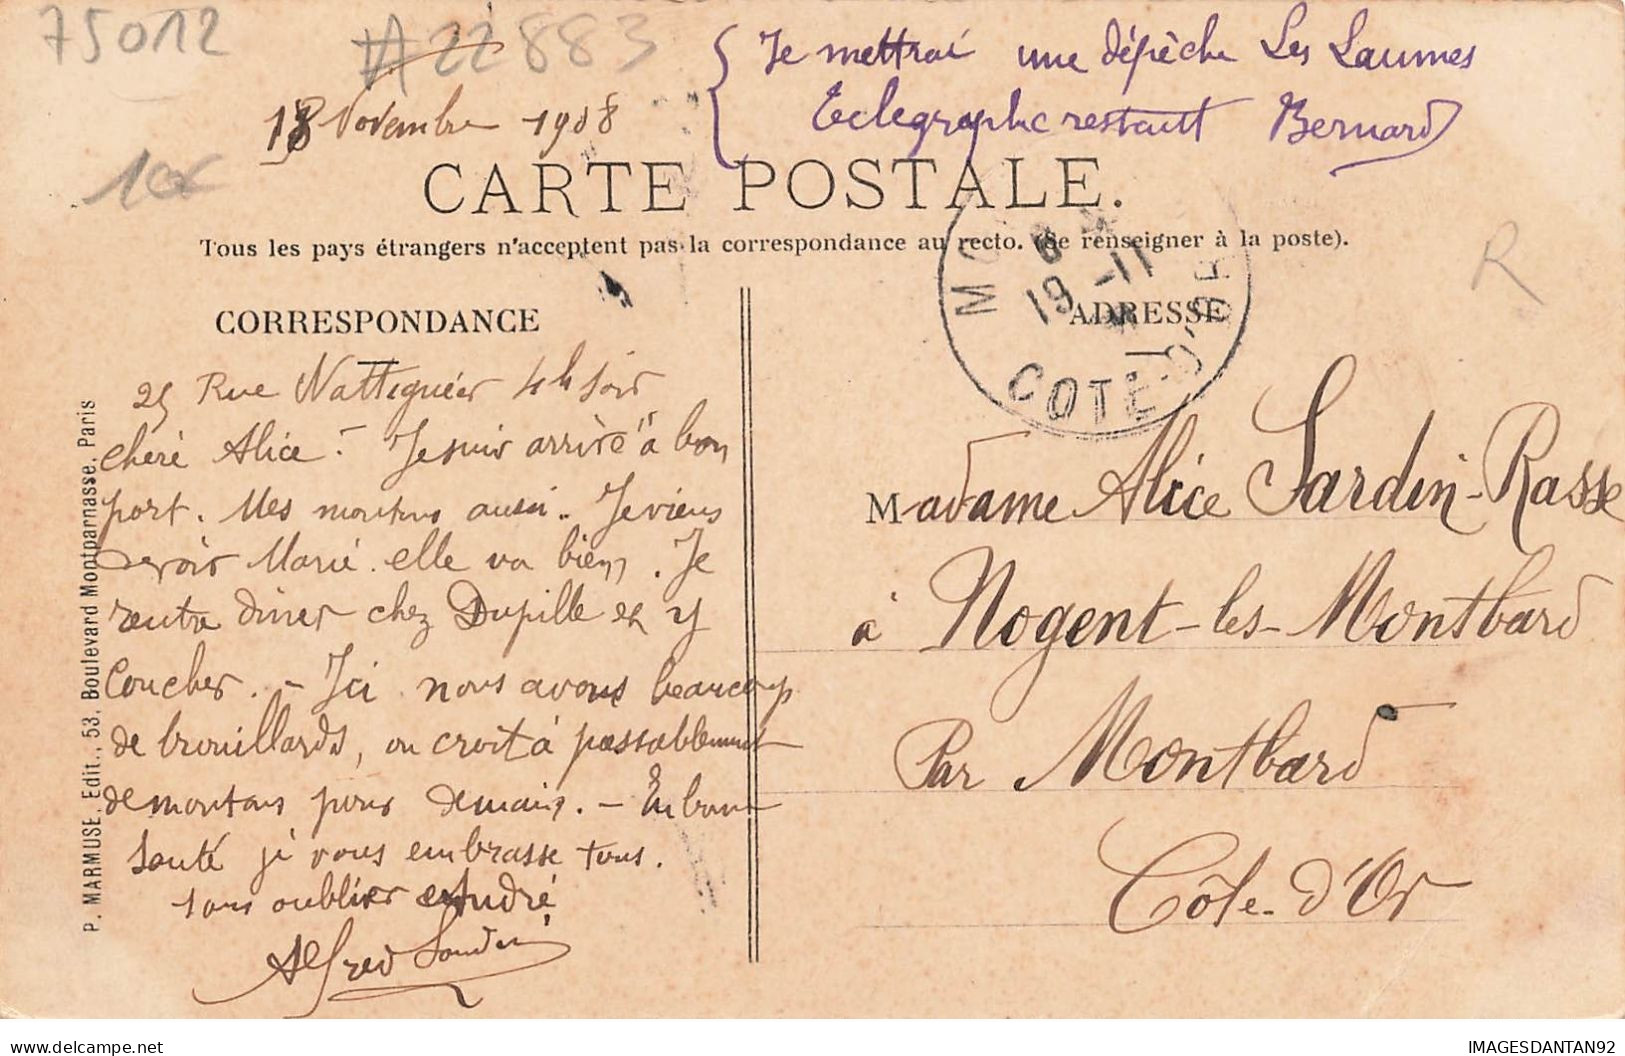 75012
#22883
Je mettrai une dépêche Les Laumes
Telegraphe restant Bernard
18 Novembre 1908
CARTE POSTALE.
Tous les pays étrangers n'acceptent pas la correspondance au recto. (Se renseigner à la poste).
R
MO
19 -11
COTE-D'OR
CORRESPONDANCE
ADRESSE
25 Rue Wattignies 4h soir
chère Alice. Je suis arrivé à bon
port. Mes moutons aussi. Je viens
voir Marie elle va bien. Je
rentre diner chez Dupille et y
Coucher. - Ici nous avons beaucoup
de brouillards, on croit à passablement
de moutons pour demain. - En bonne
santé je vous embrasse tous.
sans oublier André
Alfred Sardin
Madame Alice Sardin-Rasse
à Nogent-les-Montbard
Par Montbard
Côte-d'Or
P. MARMUSE, Edit., 53, Boulevard Montparnasse, Paris
IMAGESDANTAN92
delcampe.net